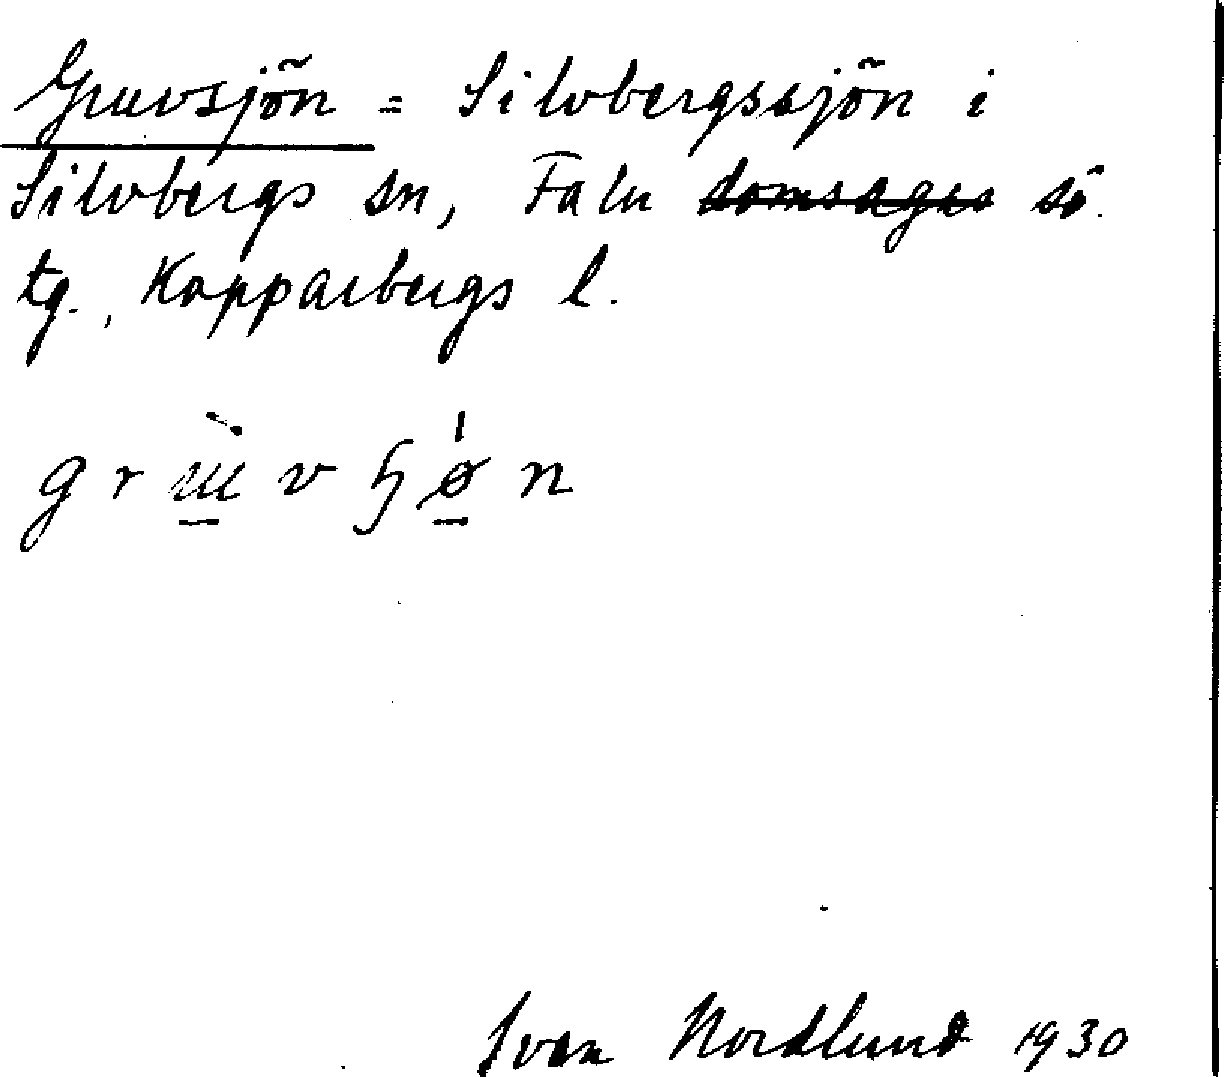 Gruvsjön = Silvbergssjön i
Silvbergs sn, Falu domsagas sö.
tg., Kopparbergs l.
g r v n
Ivan Nordlund 1930